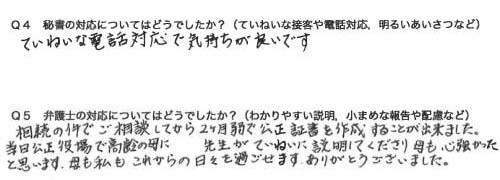 Q4 秘書の対応についてはどうでしたか？（ていねいな接客や電話対応、明るいあいさつなど）
ていねいな電話対応で気持ちが良いです
Q5 弁護士の対応についてはどうでしたか？（わかりやすい説明、小まめな報告や配慮など）
相続の件でご相談してから2ヶ月弱で公正証書を作成することが出来ました。
当日公正役場で高齢の母に 先生がていねいに説明してくださり母も心強かった
と思います。母も私もこれからの日々を過ごせます。ありがとうございました。